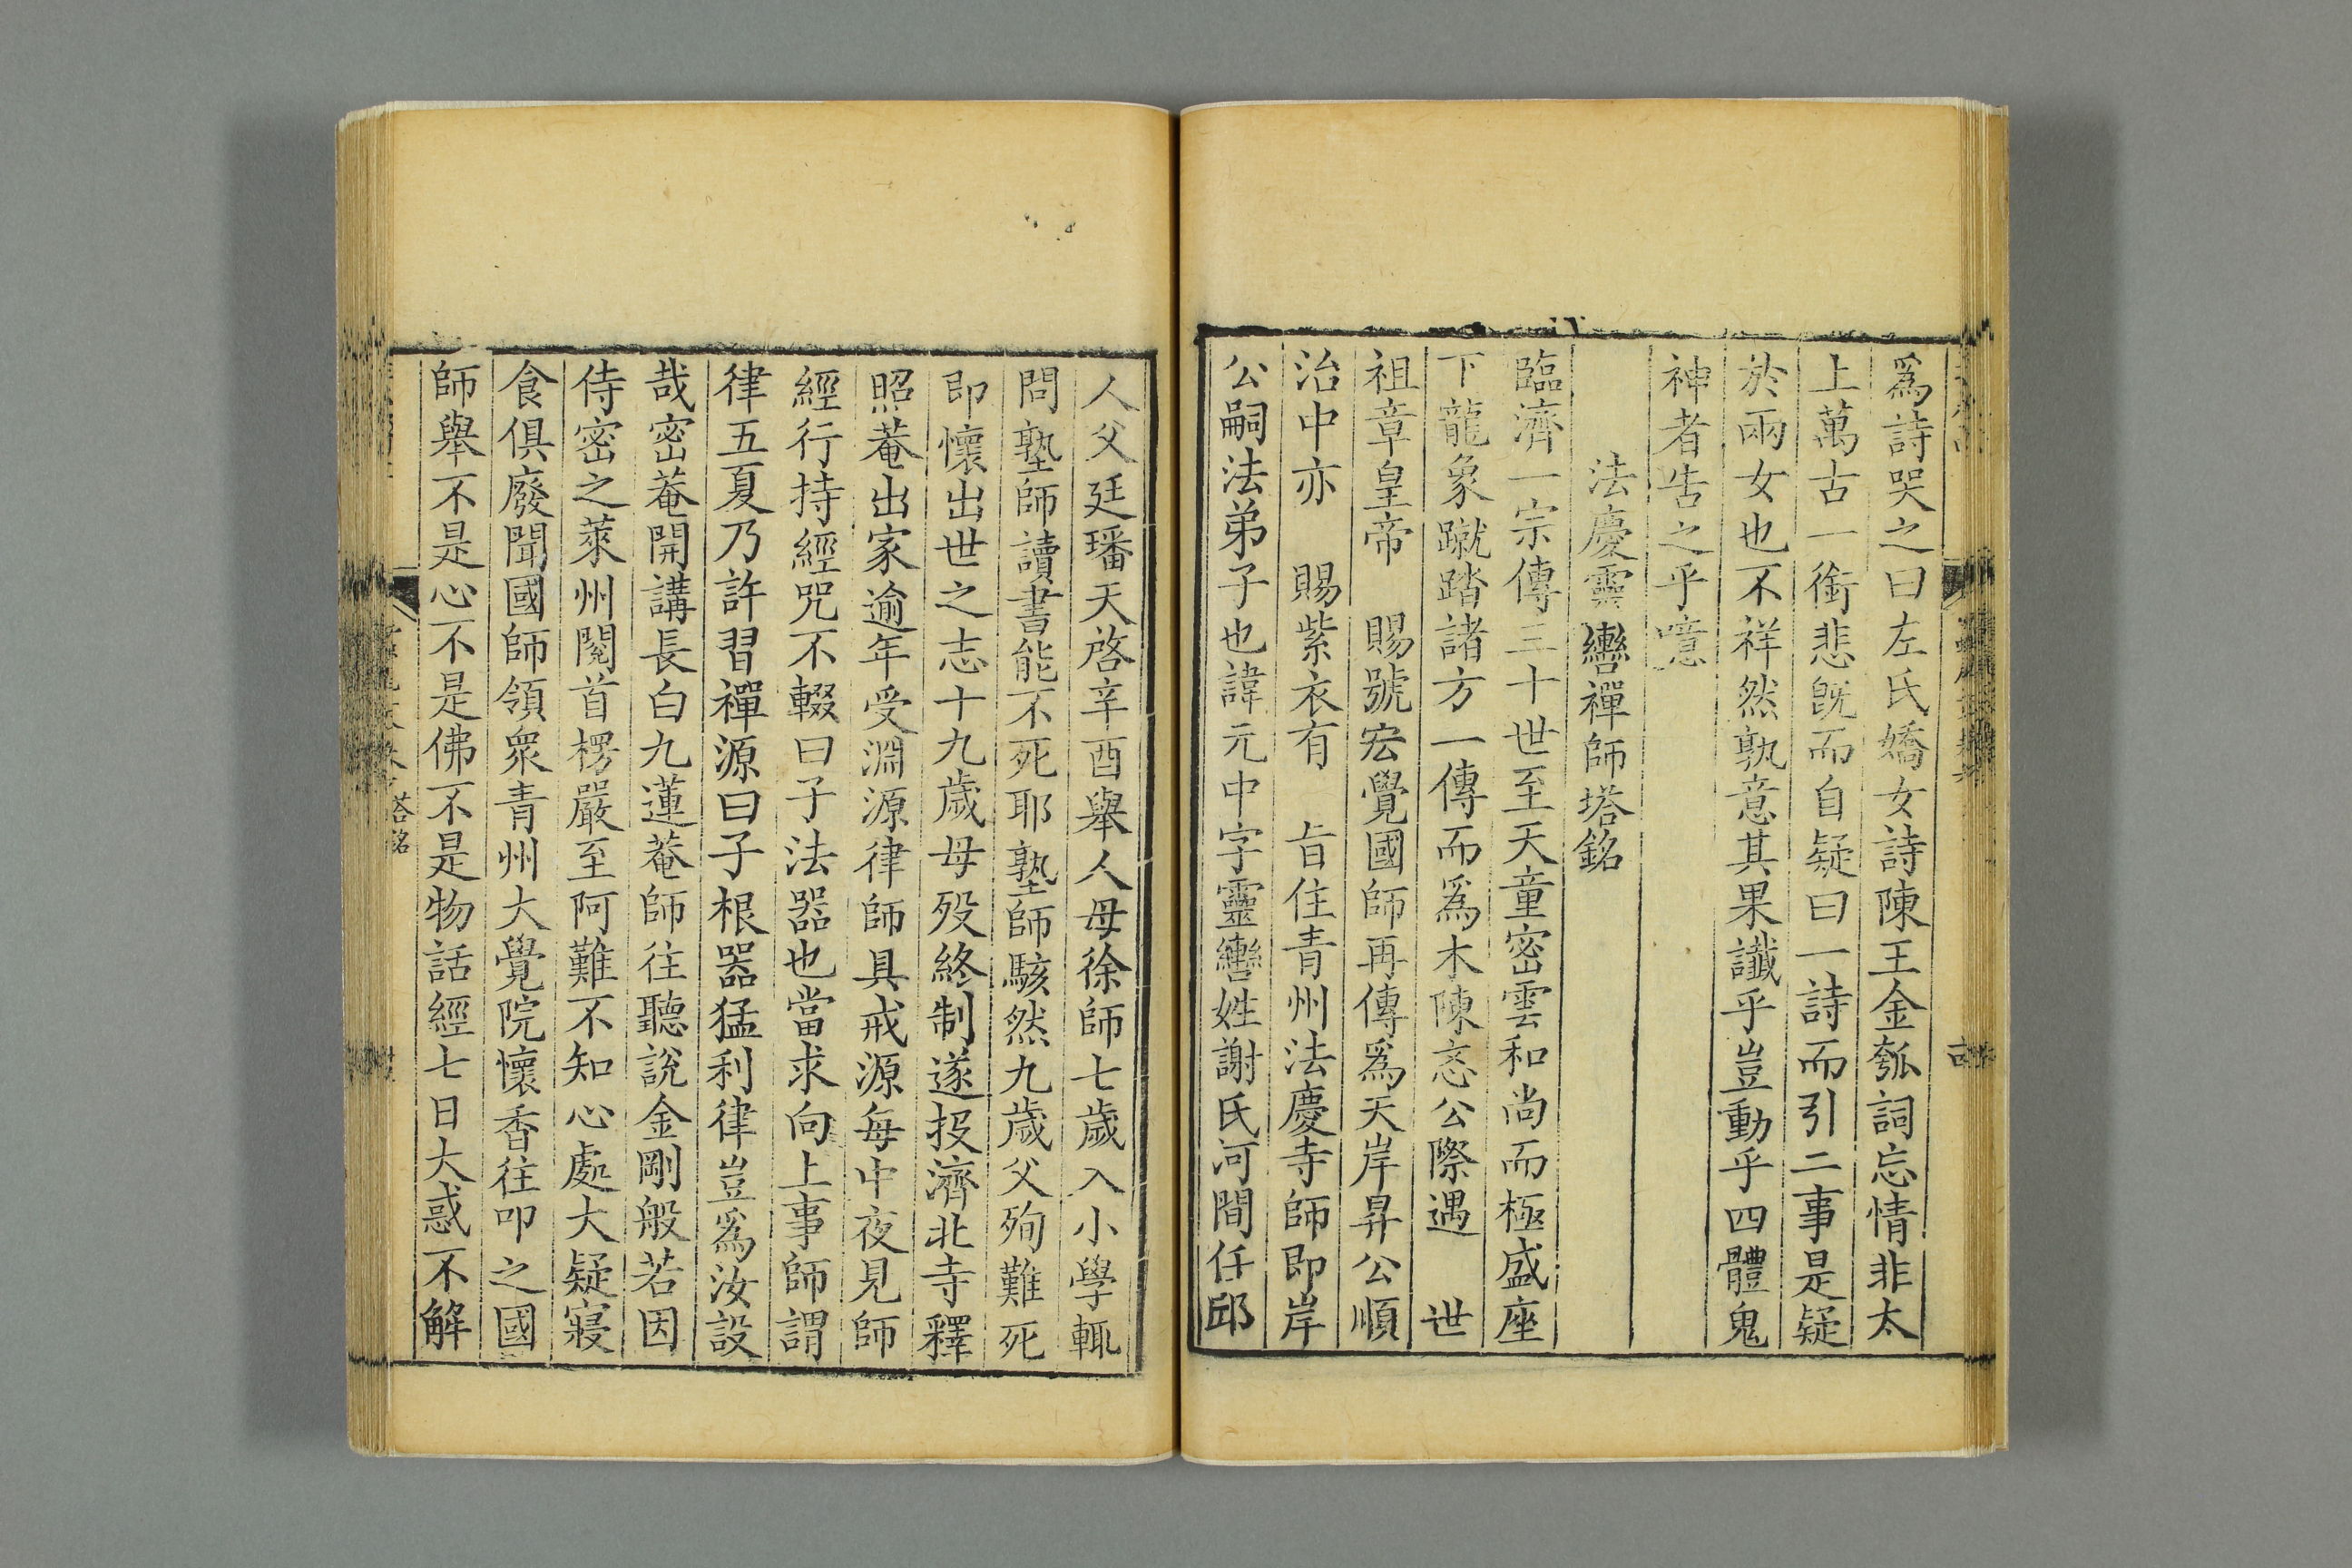 爲詩哭之曰左氏嬌女詩陳王金瓠詞忘情非太
上萬古一銜悲旣而自疑曰一詩而引二事是疑
於兩女也不祥然孰意其果讖乎豈動乎四體鬼
神者告之乎噫
法慶靈轡禪師塔銘
臨濟一宗傳三十世至天童密雲和尚而極盛座
下龍象蹴踏諸方一傳而爲木陳忞公際遇 世
祖章皇帝 賜號宏覺國師再傳爲天岸昇公順
治中亦 賜紫衣有 旨住青州法慶寺師即岸
公嗣法弟子也諱元中字靈轡姓謝氏河間任邱
人父廷璠天啓辛酉舉人母徐師七歲入小學輒
問塾師讀書能不死耶塾師駭然九歲父殉難死
即懷出世之志十九歲母歿終制遂投濟北寺釋
照菴出家逾年受淵源律師具戒源每中夜見師
經行持經咒不輟曰子法器也當求向上事師謂
律五夏乃許習禪源曰子根器猛利律豈爲汝設
哉密菴開講長白九蓮菴師往聽說金剛般若因
侍密之萊州閱首楞嚴至阿難不知心處大疑寢
食俱廢聞國師領衆青州大覺院懷香往叩之國
師舉不是心不是佛不是物話經七日大惑不解
塔銘